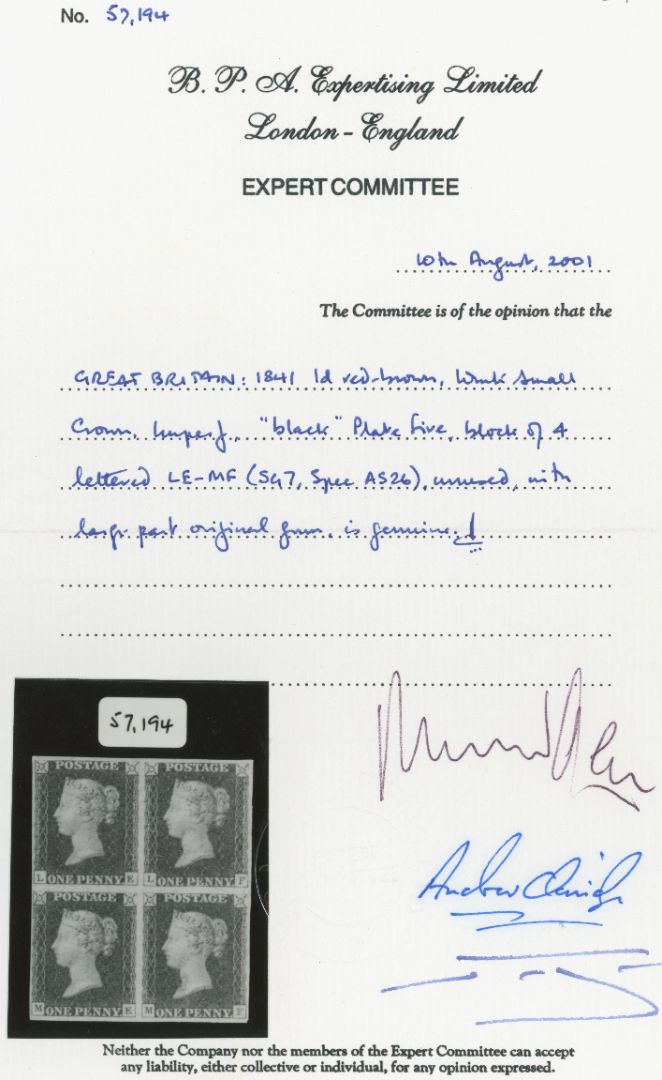 No. 57,194
B. P. A. Expertising Limited
London - England
EXPERT COMMITTEE
10th August, 2001
The Committee is of the opinion that the
GREAT BRITAIN: 1841 1d red-brown, Wmk Small
Crown, Imperf, "black" Plate five, block of 4
lettered LE-MF (SG7, Spec AS26), unused, with
large part original gum, is genuine.
57,194
POSTAGE POSTAGE
L ONE PENNY E L ONE PENNY F
POSTAGE POSTAGE
M ONE PENNY E M ONE PENNY F
Andrew
Neither the Company nor the members of the Expert Committee can accept
any liability, either collective or individual, for any opinion expressed.